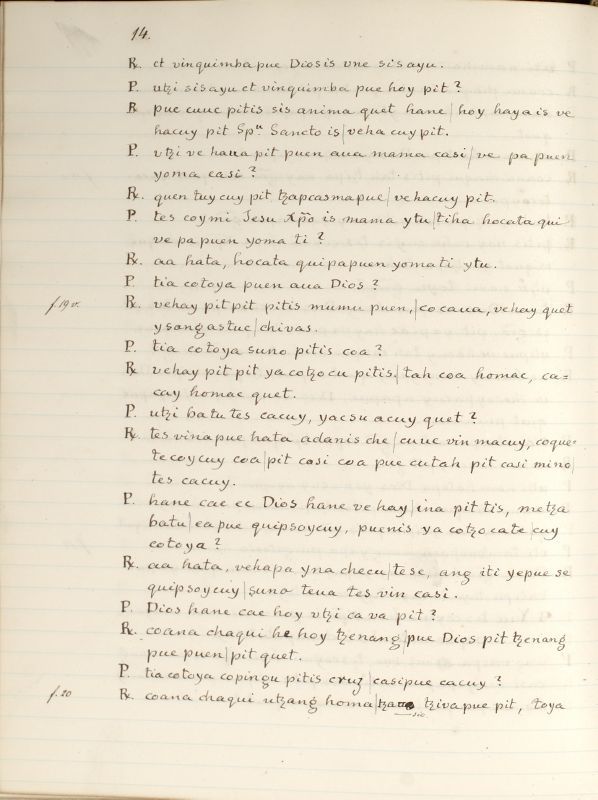 14.
℟. et vinquimba pue Dios is vne sis ayu.
P. utzi sis ayu et vinquimba pue hoy pit?
℟ pue cuuc pitis sis anima quet hane | hoy haya is ve
hacuy pit Spu Sancto is | veha cuy pit.
P. vtzi ve haua pit puen aua mama casi | ve pa puen
yoma casi?
℟. quen tuy cuy pit tzapcasmapue | ve hacuy pit.
P. tes coymi Jesu Xpo is mama ytu | tiha hocata qui
ve pa puen yoma ti?
℟. aa hata, hocata quipapuen yomati ytu.
P. tia cotoya puen aua Dios?
f. 19 v. ℟. vehay pit pit pitis mumu puen, | co caua, vehay quet
ysangastuc | chivas.
P. tia cotoya suno pitis coa?
℟ vehay pit pit ya cotzocu pitis | tah coa homac, ca=
cay homac quet.
P. utzi batu tes cacuy, yacsu acuy quet?
℟. tes vinapue hata adanis che | cuuc vin macuy, coque=
te coycuy coa | pit casi coa pue cutah pit casi mino |
tes cacuy.
P. hane cae ec Dios hane ve hay | ina pit tis, metza
batu | ea pue quipsoycuy, puenis ya cotzocate | cuy
cotoya?
℟. aa hata, vehapa yna checu | tese, ang iti yepue se
quipsoycuy | suno teua tes vin casi.
P. Dios hane cae hoy vtzi ca va pit?
℟. coana chaqui he hoy tzenang | pue Dios pit tzenang
pue puen | pit quet.
P. tia cotoya copingu pitis cruz | casipue cacuy?
f. 20 ℟. coana chaqui utzang homa | tziva pue pit, toya
sic